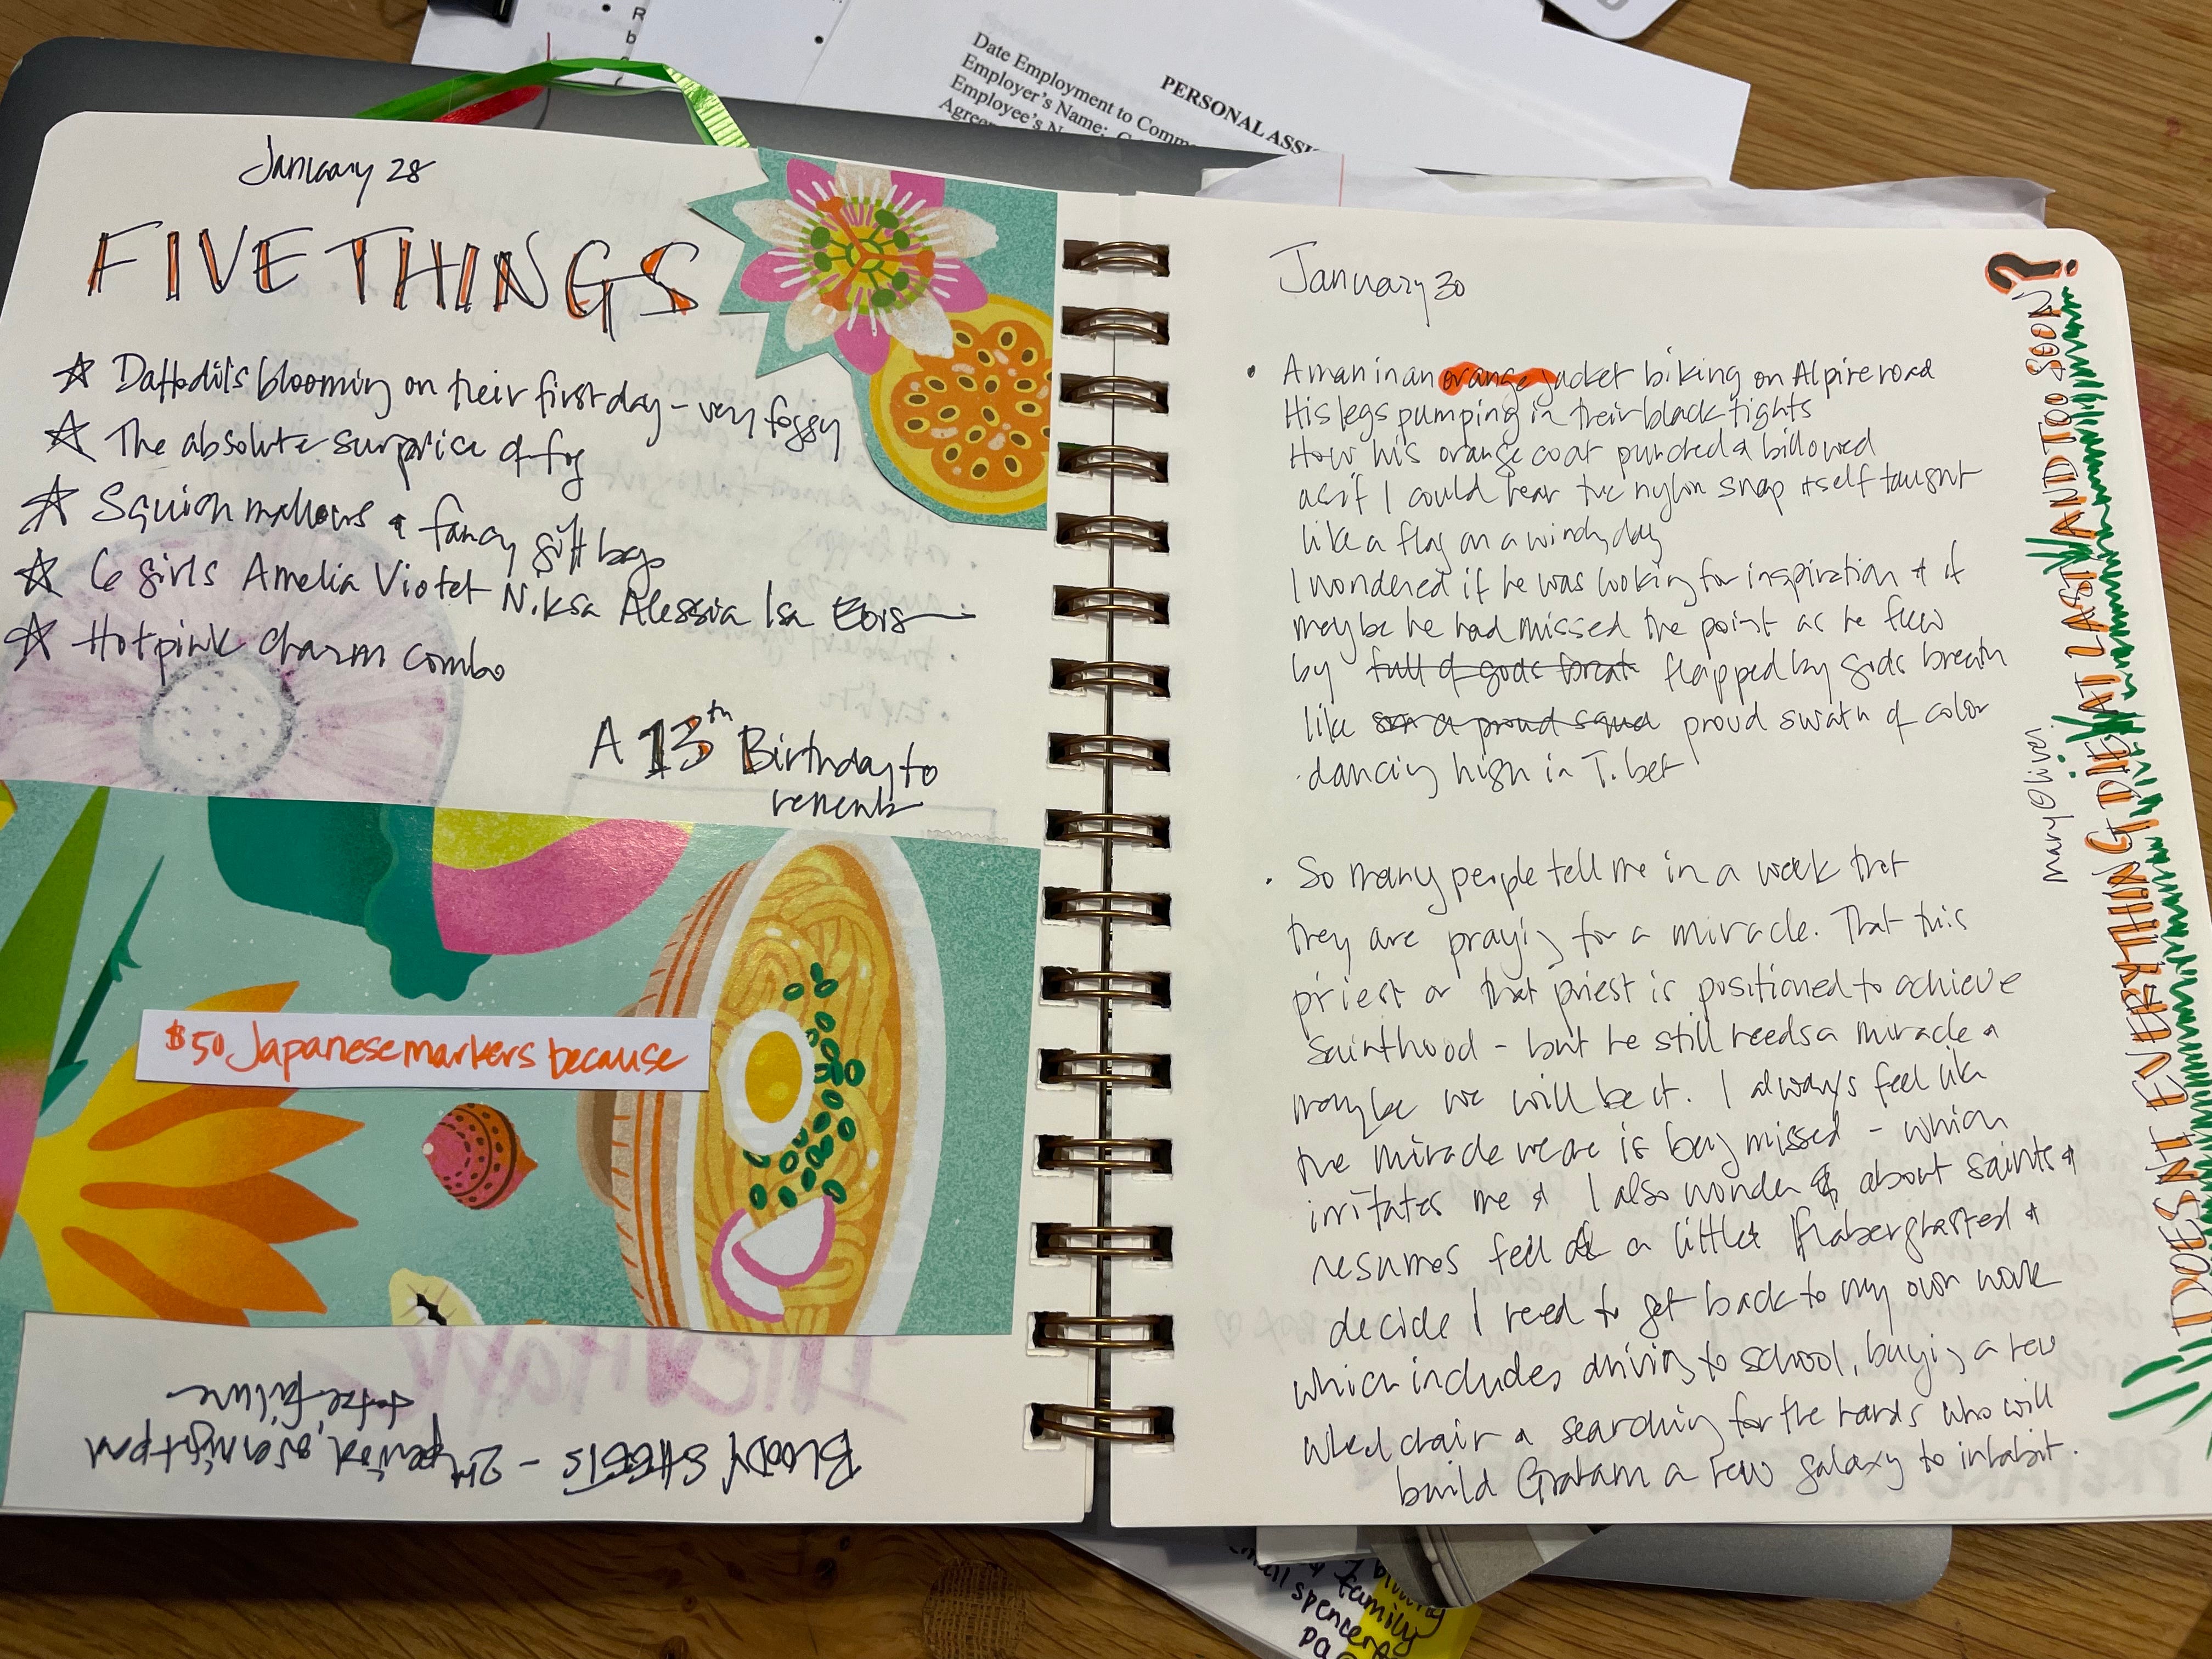 R
b
PERSONAL ASSI
Date Employment to Comm
Employer's Name: G
Employee's N
Agree
January 28
FIVE THINGS
☆ Daffodils blooming on their first day - very foggy
☆ The absolute surprise of fog
☆ Squish mallows & fancy gift bags
☆ 6 girls Amelia Violet Niksa Alessia Isa
☆ Hot pink charm combo
A 13th Birthday to
$50 Japanese markers because
BLOODY SHEETS - 2nd period, overnight pad
to the failure
January 30
• A man in an orange jacket biking on Alpine road
His legs pumping in their black tights
How his orange coat punched & billowed
as if I could hear the nylon snap itself taught
like a flag on a windy day
I wondered if he was looking for inspiration & if
maybe he had missed the point as he flew
by full of gods breat flapped by gods breath
like a proud proud swath of color
dancing high in Tibet
• So many people tell me in a week that
they are praying for a miracle. That this
priest or that priest is positioned to achieve
sainthood - but he still needs a miracle &
maybe we will be it. I always feel like
the miracle we are is being missed - which
irritates me & I also wonder about saints &
resumes feel a little flaberghasted &
decide I need to get back to my own work
which includes driving to school, buying a new
wheel chair & searching for the hands who will
build Graham a new galaxy to inhabit.
DOESN'T EVERYTHING DIE AT LAST AND TOO SOON?
mary Oliver
family
spencer
pa